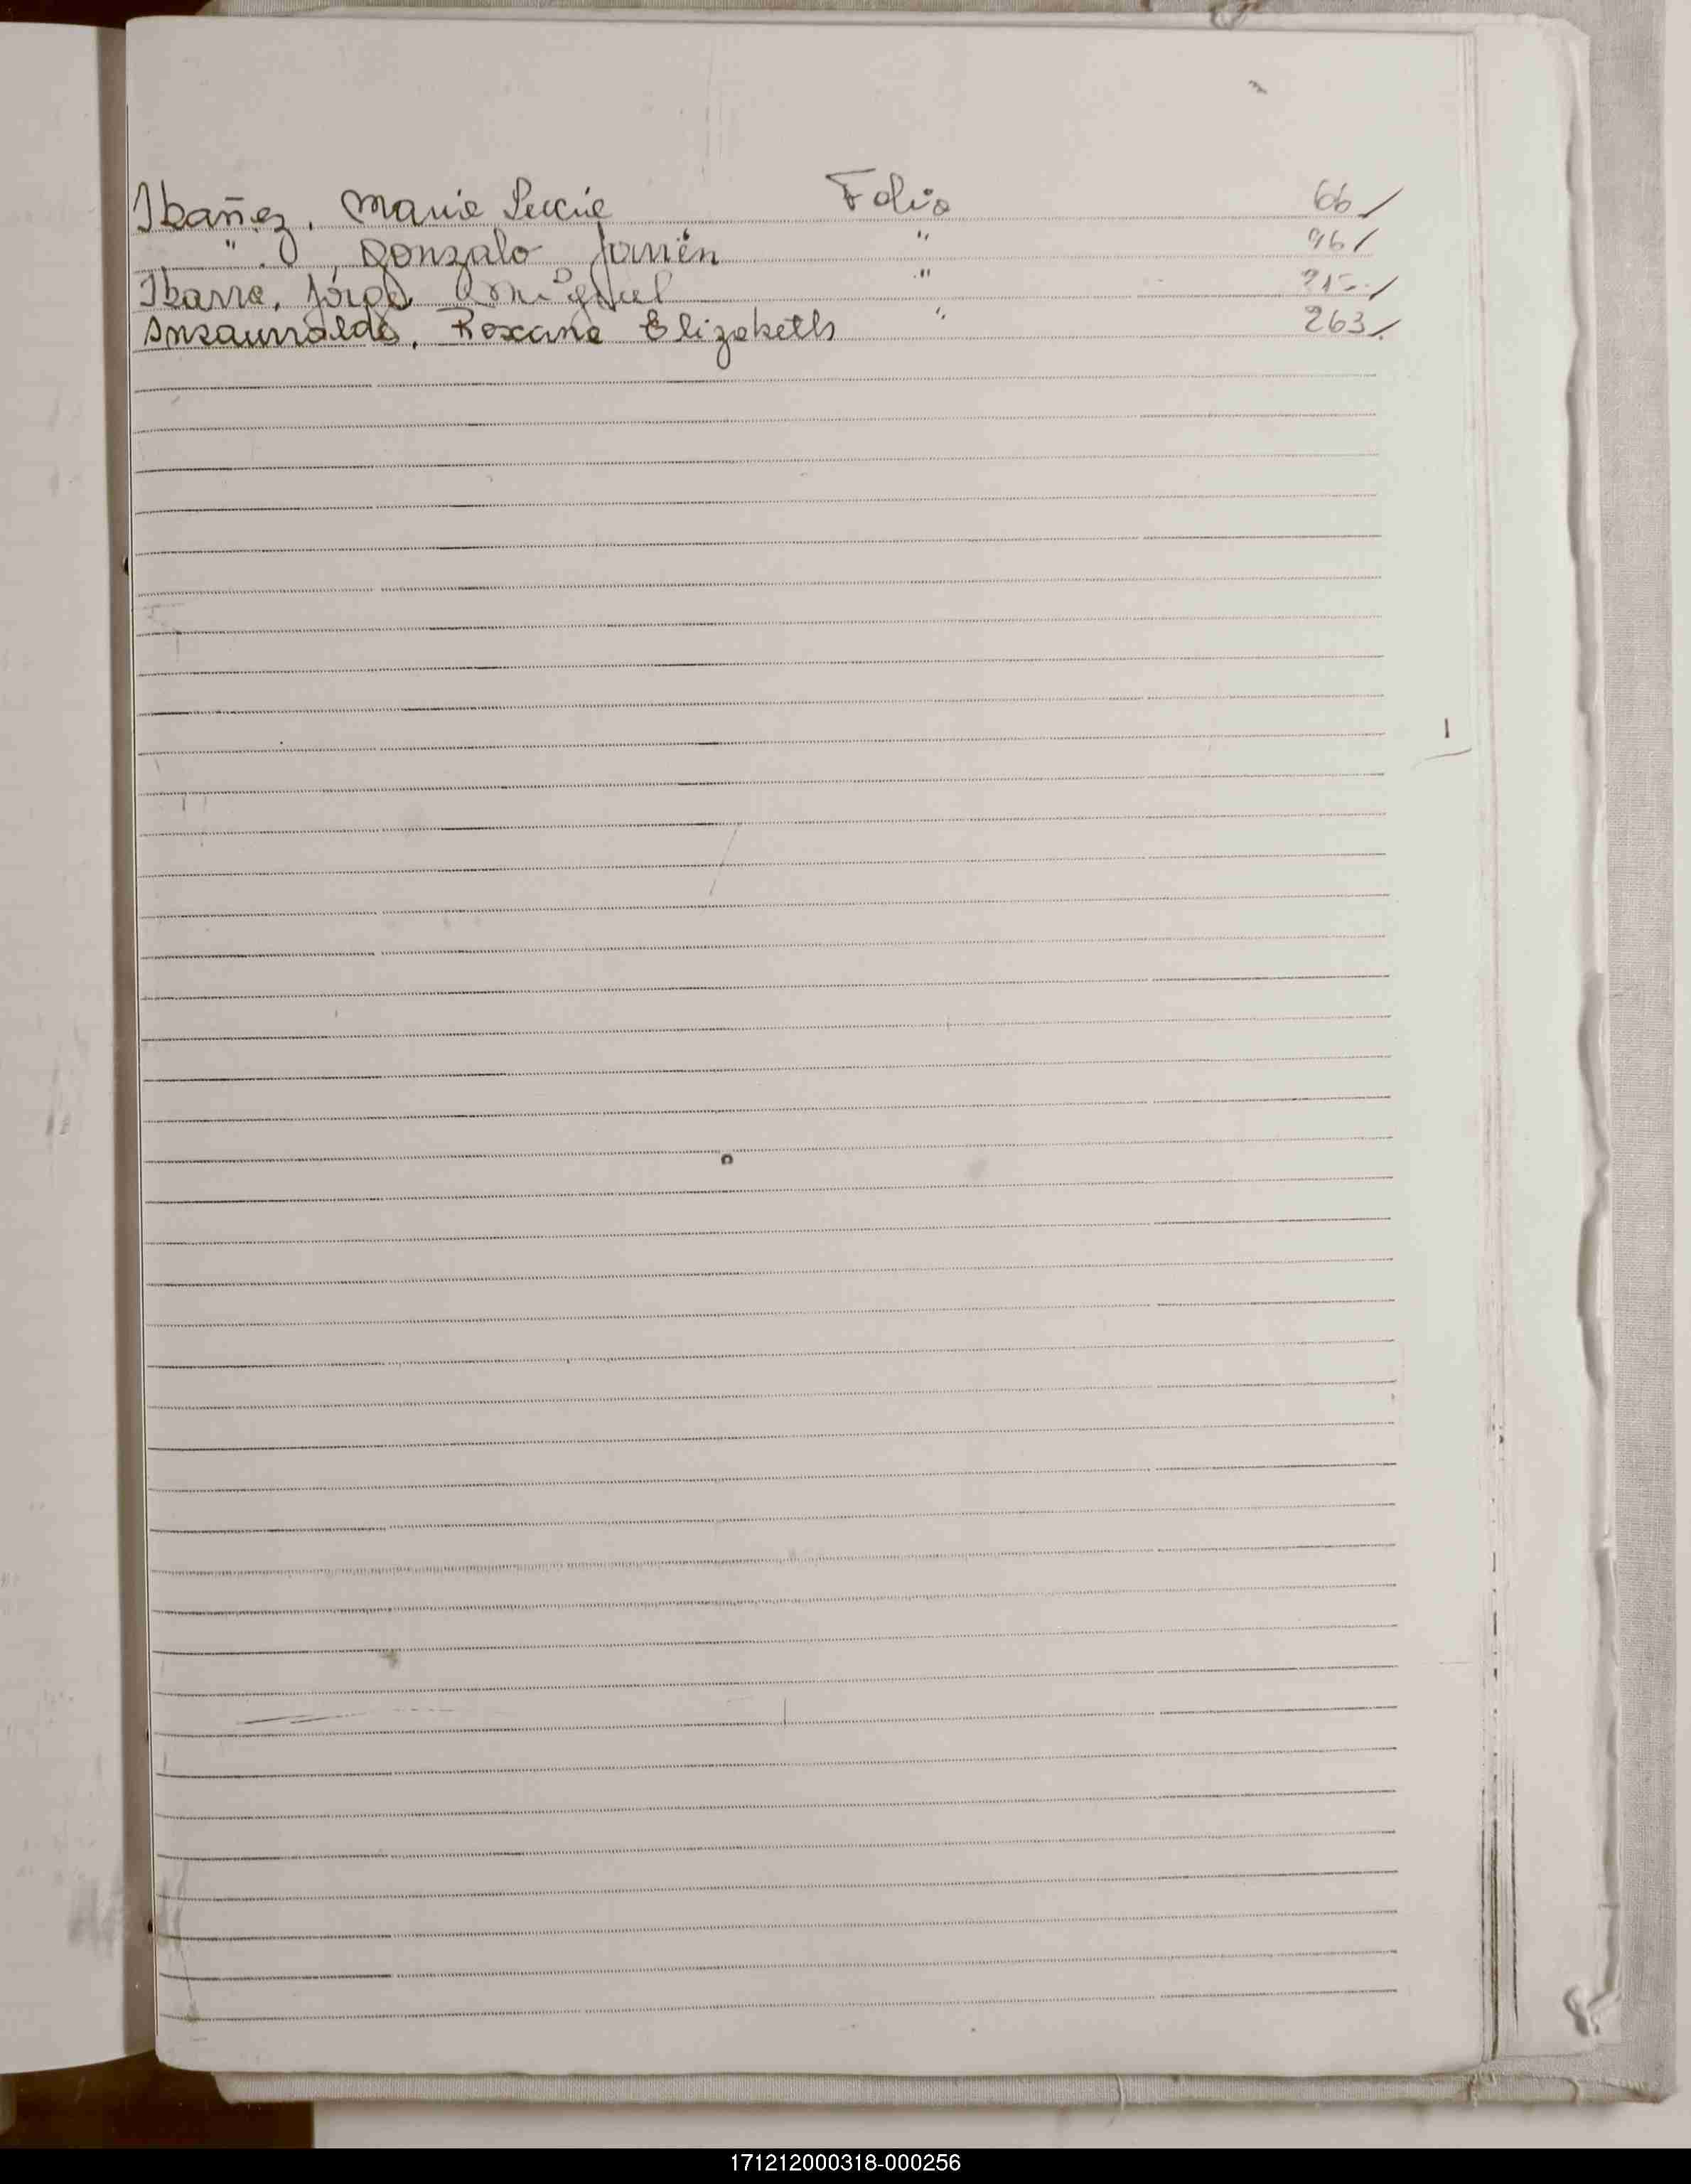 Ibañez, Maria Lucia Folio 66/
" , Gonzalo Javier " 96/
Ibarra, Jorge Miguel " 215/
Insaurralde, Roxana Elizabeth " 263/
I
171212000318-000256